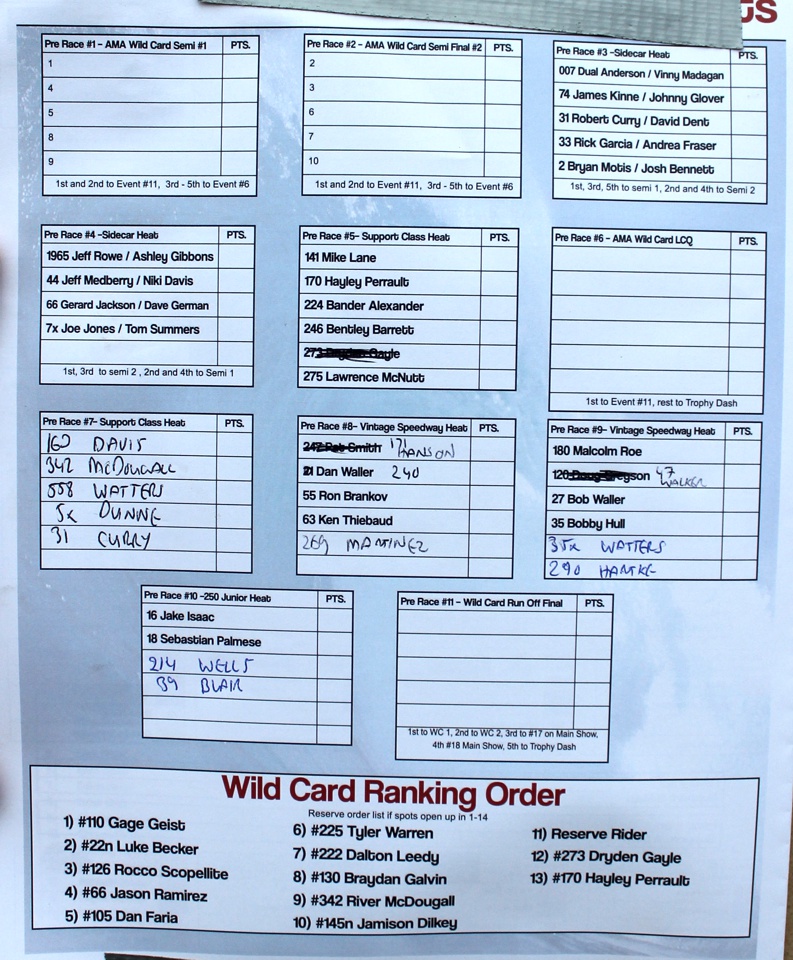 TS
Pre Race #1 - AMA Wild Card Semi #1 PTS.
1
4
5
8
9
1st and 2nd to Event #11, 3rd - 5th to Event #6
Pre Race #2 - AMA Wild Card Semi Final #2 PTS.
2
3
6
7
10
1st and 2nd to Event #11, 3rd - 5th to Event #6
Pre Race #3 -Sidecar Heat PTS.
007 Dual Anderson / Vinny Madagan
74 James Kinne / Johnny Glover
31 Robert Curry / David Dent
33 Rick Garcia / Andrea Fraser
2 Bryan Motis / Josh Bennett
1st, 3rd, 5th to semi 1, 2nd and 4th to Semi 2
Pre Race #4 -Sidecar Heat PTS.
1965 Jeff Rowe / Ashley Gibbons
44 Jeff Medberry / Niki Davis
66 Gerard Jackson / Dave German
7x Joe Jones / Tom Summers
1st, 3rd to semi 2 , 2nd and 4th to Semi 1
Pre Race #5- Support Class Heat PTS.
141 Mike Lane
170 Hayley Perrault
224 Bander Alexander
246 Bentley Barrett
273 Dryden Gayle
275 Lawrence McNutt
Pre Race #6 - AMA Wild Card LCQ PTS.
1st to Event #11, rest to Trophy Dash
Pre Race #7- Support Class Heat PTS.
160 DAVIS
342 McDOUGALL
558 WATTERS
5x DUNNE
31 CURRY
Pre Race #8- Vintage Speedway Heat PTS.
247 Rob Smith 171 HANSON
21 Dan Waller 240
55 Ron Brankov
63 Ken Thiebaud
269 MARTINEZ
Pre Race #9- Vintage Speedway Heat PTS.
180 Malcolm Roe
120 Doug Gregson 47 WALKER
27 Bob Waller
35 Bobby Hull
35x WATTERS
290 HANTKE
Pre Race #10 -250 Junior Heat PTS.
16 Jake Isaac
18 Sebastian Palmese
214 WELLS
39 BLAIR
Pre Race #11 - Wild Card Run Off Final PTS.
1st to WC 1, 2nd to WC 2, 3rd to #17 on Main Show,
4th #18 Main Show, 5th to Trophy Dash
Wild Card Ranking Order
Reserve order list if spots open up in 1-14
1) #110 Gage Geist
2) #22n Luke Becker
3) #126 Rocco Scopellite
4) #66 Jason Ramirez
5) #105 Dan Faria
6) #225 Tyler Warren
7) #222 Dalton Leedy
8) #130 Braydan Galvin
9) #342 River McDougall
10) #145n Jamison Dilkey
11) Reserve Rider
12) #273 Dryden Gayle
13) #170 Hayley Perrault